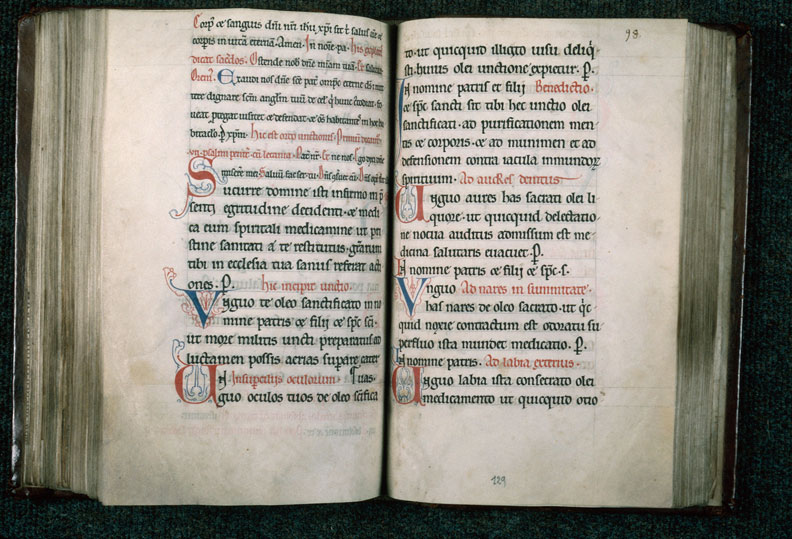 Corp⁹ ⁊ sanguis dn̄i nr̄i ihu xp̄i sit t̄ salus
corpis in uitā eternā. Amen. In noīe pa.
dicat sacdos. Ostende nob dn̄e
Orem̄. Exaudi nos dn̄e sc̄e pat̄ omps̄ eterne ds̄
tere dignare sc̄m anglm̄ tuū de cel
ueat. ptegat uisitet ⁊ defendat ⁊ om̄s habitantes in hoc ha
bitaclo. P xp̄m. hic est ordo unctionis.
cū letania. Pater nr̄. Et ne nos.
Saluū fac seruū.
Sucurre domine isti infirmo in p
senti egritudine decidenti. ⁊ medi
ca eum spiritali medicamine ut pri
stine sanitati a te restitutus. gr̄arum
tibi in ecclesia tua sanus referat acti
ones. P. hic incipit unctio.
Vnguo te oleo sanctificato in no
mine patris ⁊ filii ⁊ sp̄c sc̄i.
ut more militis uncti preparatus ad
luctamen possis aerias supare cater
In supercilijs oculorum. uas.
Unguo oculos tuos de oleo sc̄ifica
98.
to. ut quicquid illicito uisu deliq
sti. huius olei unctione expietur. P.
In nomine patris et filij Benedictio.
⁊ sp̄c sancti sit tibi hec unctio olei
sanctificati. ad purificationem men
tis ⁊ corporis. ⁊ ad munimen et ad
defensionem contra iacula inmundoꝝ
spirituum. Ad aures deintus
Unguo aures has sacrati olei li
quore. ut quicquid delectatio
ne nociua auditus admissum est me
dicina salutaris euacuet. P.
In nomine patris ⁊ filii ⁊ sp̄c. s.
Vnguo Ad nares in summitate.
has nares de oleo sacrato. ut qc
quid noxie contractum est odoratu su
perfluo ista mundet medicatio. P.
In nomine patris. Ad labia exterius.
Unguo labia ista consecrato olei
medicamento ut quicquid otio
129